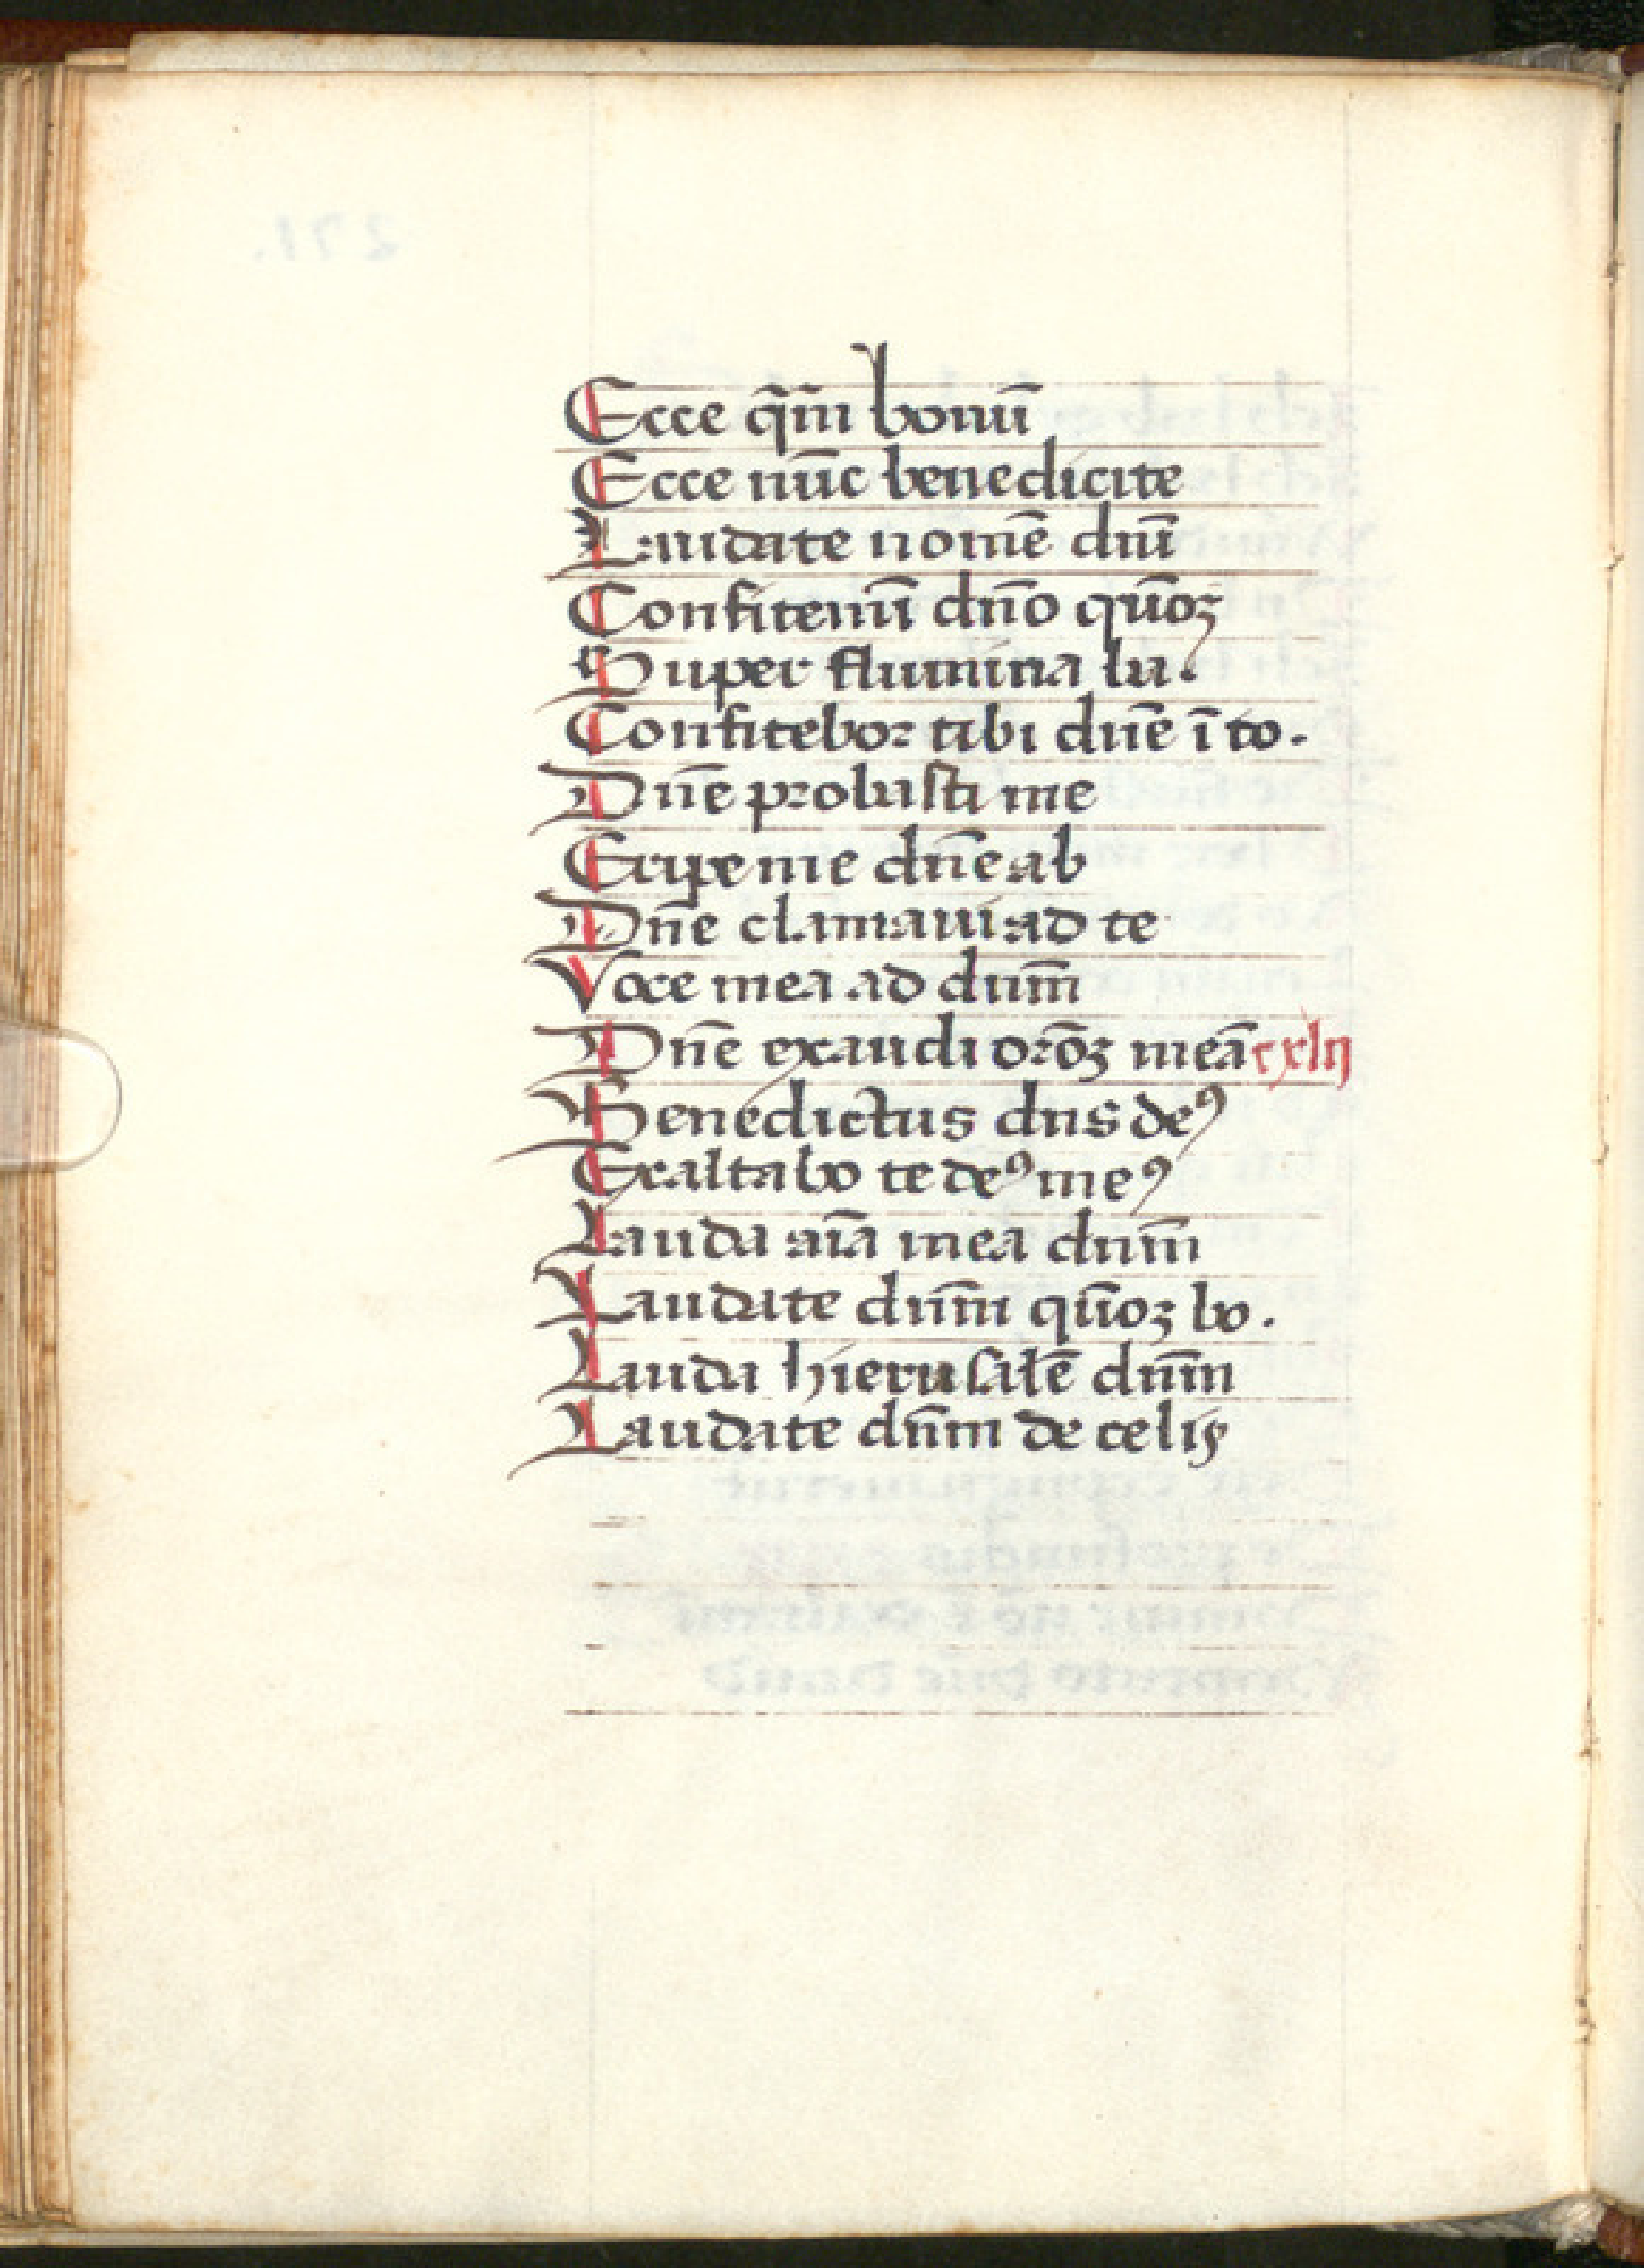 Ecce q̄m bonū
Ecce nūc benedicite
Laudate nomē dnī
Confitemī dn̄o qūoꝫ
Super flumina ba.
Confitebor tibi dn̄e ī to.
Dn̄e probasti me
Eripe me dn̄e ab
Dn̄e clamaui ad te
Voce mea ad dnm̄
Dn̄e exaudi orōꝫ meā cxlij
Benedictus dns deꝰ
Exaltabo te deꝰ meꝰ
Lauda aīa mea dnm̄
Laudate dnm̄ qūoꝫ bo.
Lauda hierusalē dnm̄
Laudate dn̄m de celis